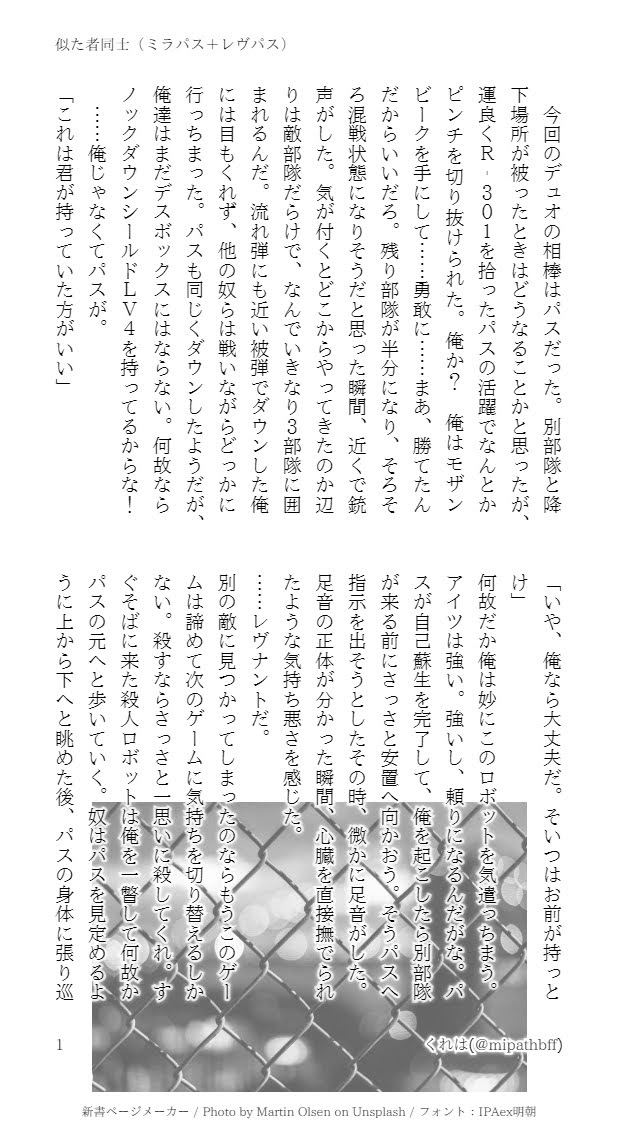 似た者同士（ミラパス＋レヴパス）
　今回のデュオの相棒はパスだった。別部隊と降
下場所が被ったときはどうなることかと思ったが、
運良くR‐301を拾ったパスの活躍でなんとか
ピンチを切り抜けられた。俺か？　俺はモザン
ビークを手にして……勇敢に……まあ、勝てたん
だからいいだろ。残り部隊が半分になり、そろそ
ろ混戦状態になりそうだと思った瞬間、近くで銃
声がした。気が付くとどこからやってきたのか辺
りは敵部隊だらけで、なんでいきなり3部隊に囲
まれるんだ。流れ弾にも近い被弾でダウンした俺
には目もくれず、他の奴らは戦いながらどっかに
行っちまった。パスも同じくダウンしたようだが、
俺達はまだデスボックスにはならない。何故なら
ノックダウンシールドLV4を持ってるからな！
　……俺じゃなくてパスが。
「これは君が持っていた方がいい」
「いや、俺なら大丈夫だ。そいつはお前が持っと
け」
何故だか俺は妙にこのロボットを気遣っちまう。
アイツは強い。強いし、頼りになるんだがな。パ
スが自己蘇生を完了して、俺を起こしたら別部隊
が来る前にさっさと安置へ向かおう。そうパスへ
指示を出そうとしたその時、微かに足音がした。
足音の正体が分かった瞬間、心臓を直接撫でられ
たような気持ち悪さを感じた。
……レヴナントだ。
別の敵に見つかってしまったのならもうこのゲー
ムは諦めて次のゲームに気持ちを切り替えるしか
ない。殺すならさっさと一思いに殺してくれ。す
ぐそばに来た殺人ロボットは俺を一瞥して何故か
パスの元へと歩いていく。奴はパスを見定めるよ
うに上から下へと眺めた後、パスの身体に張り巡
1
くれは(@mipathbff)
新書ページメーカー / Photo by Martin Olsen on Unsplash / フォント：IPAex明朝